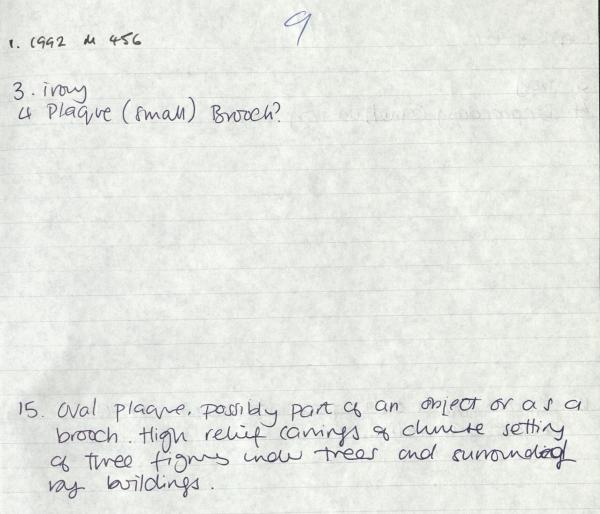 9
1. 1992 M 456
3. ivory
4 Plaque (small) Brooch?
15. Oval plaque. Possibly part of an object or as a
brooch. High relief carvings of chinese setting
of three figures under trees and surrounded
by buildings.